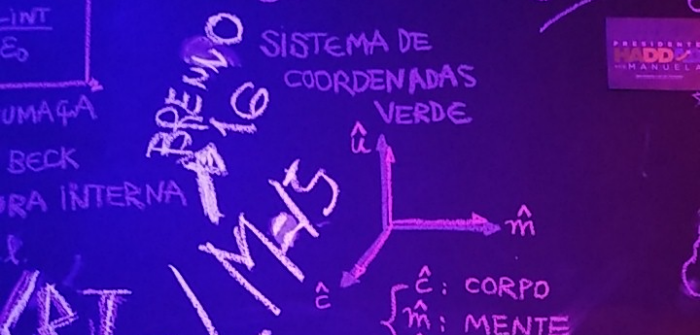 INT
ε₀
UMAÇA
BECK
RA INTERNA
BRENNO
16
SISTEMA DE
COORDENADAS
VERDE
û
m̂
ĉ
ĉ: CORPO
m̂: MENTE
PRESIDENTE
HADDAD
MANUELA